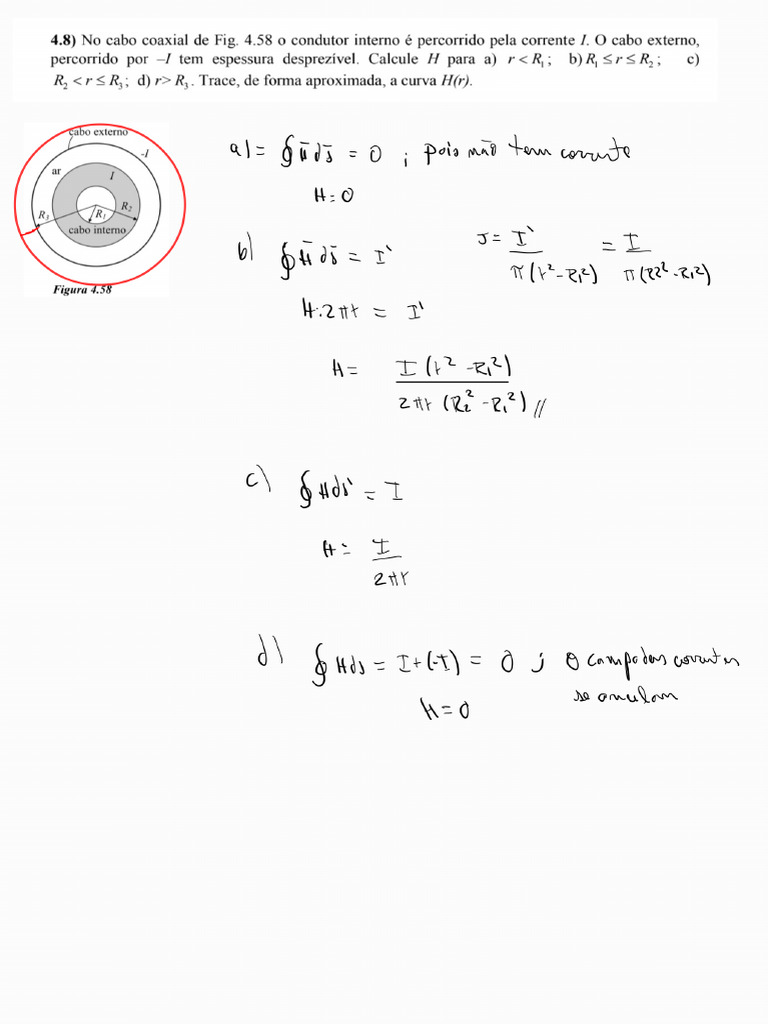 4.8) No cabo coaxial de Fig. 4.58 o condutor interno é percorrido pela corrente I. O cabo externo,
percorrido por –I tem espessura desprezível. Calcule H para a) r < R₁; b) R₁ ≤ r ≤ R₂; c)
R₂ < r ≤ R₃; d) r > R₃. Trace, de forma aproximada, a curva H(r).
cabo externo
-I
ar
I
R₂
R₁
R₃
cabo interno
Figura 4.58
a) = ∮ H̄ ds̄ = 0 ; pois não tem corrente
H = 0
b) ∮ H̄ ds̄ = I' J = I' / π(r² - R₁²) = I / π(R2² - R₁²)
H.2πr = I'
H = I (r² - R₁²) / 2πr (R₂² - R₁²) //
c) ∮ H ds = I
H = I / 2πr
d) ∮ H ds = I + (-I) = 0 ; O campo das correntes
se anulam
H = 0